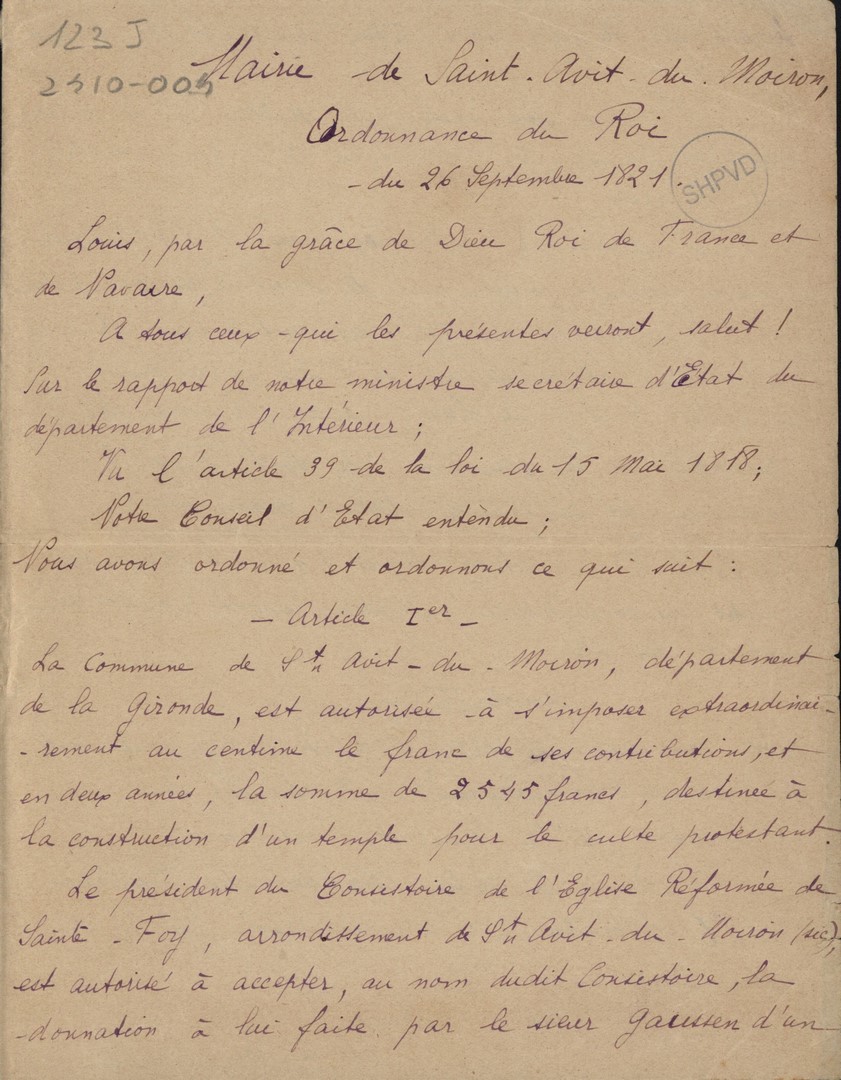 123 J
2510-005
Mairie de Saint-Avit-du-Moiron,
Ordonnance du Roi
du 26 Septembre 1821.
SHPVD
Louis, par la grâce de Dieu Roi de France et
de Navarre,
A tous ceux qui les présentes verront, salut !
Sur le rapport de notre ministre secrétaire d'Etat du
département de l'Intérieur ;
Vu l'article 39 de la loi du 15 Mai 1818 ;
Notre Conseil d'Etat entendu ;
Nous avons ordonné et ordonnons ce qui suit :
— Article Ier —
La Commune de St Avit-du-Moiron, département
de la Gironde, est autorisée à s'imposer extraordinai-
-rement au centime le franc de ses contributions, et
en deux années, la somme de 2545 francs, destinée à
la construction d'un temple pour le culte protestant.
Le président du Consistoire de l'Eglise Réformée de
Sainte-Foy, arrondissement de St Avit-du-Moiron (sic),
est autorisé à accepter, au nom dudit Consistoire, la
donnation à lui faite par le sieur Gaussen d'un